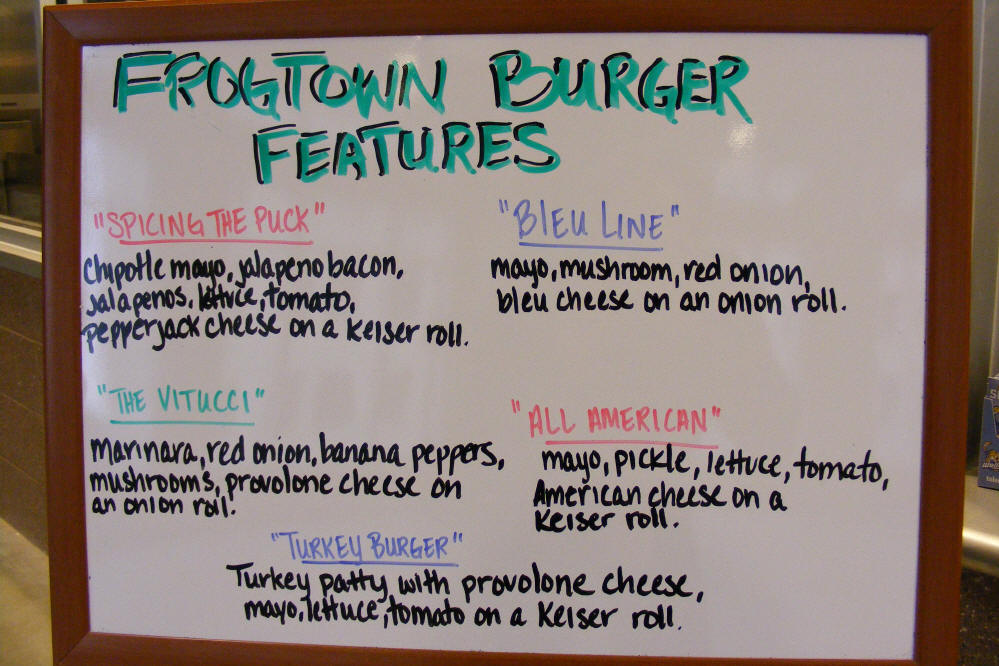 FROGTOWN BURGER
FEATURES
"SPICING THE PUCK"
Chipotle mayo, jalapeno bacon,
jalapenos, lettuce, tomato,
pepperjack cheese on a Keiser roll.
"BLEU LINE"
mayo, mushroom, red onion,
bleu cheese on an onion roll.
"THE VITUCCI"
marinara, red onion, banana peppers,
mushrooms, provolone cheese on
an onion roll.
"ALL AMERICAN"
mayo, pickle, lettuce, tomato,
American cheese on a
Keiser roll.
"TURKEY BURGER"
Turkey patty with provolone cheese,
mayo, lettuce, tomato on a Keiser roll.